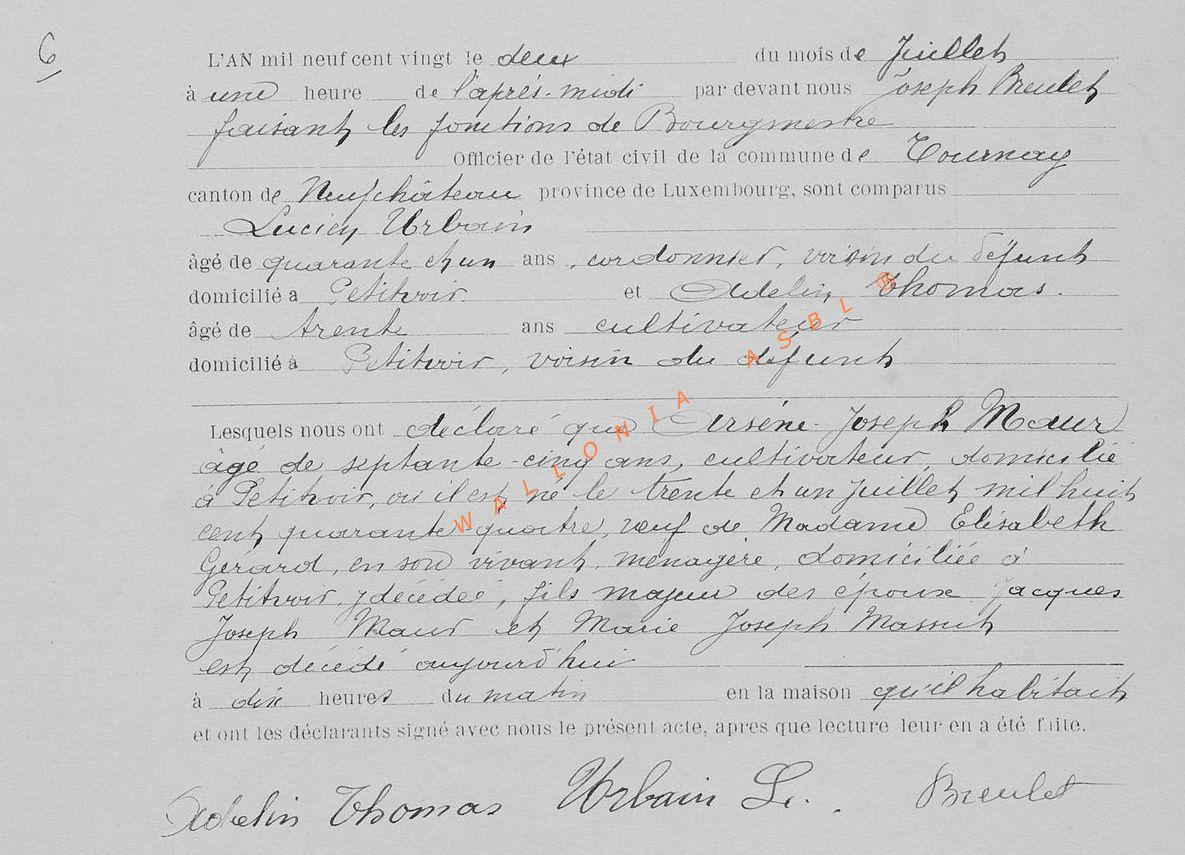 6
L'AN mil neuf cent vingt le deux du mois de Juillet
à une heure de l'après-midi par devant nous Joseph Breulet
faisant les fonctions de Bourgmestre
Officier de l'état civil de la commune de Tournay
canton de Neufchâteau province de Luxembourg, sont comparus
Lucien Urbain
âgé de quarante et un ans, cordonnier, voisin du défunt
domicilié à Petitvoir et Adelin Thomas.
âgé de trente ans cultivateur
domicilié à Petitvoir, voisin du défunt
Lesquels nous ont déclaré que Arsène Joseph Maur
âgé de septante-cinq ans, cultivateur, domicilié
à Petitvoir, où il est né le trente et un Juillet mil huit
cent quarante-quatre, veuf de Madame Elisabeth
Gérard, en son vivant, ménagère, domiciliée à
Petitvoir, y décédée, fils majeur des époux Jacques
Joseph Maur et Marie Joseph Massut
est décédé aujourd'hui
à dix heures du matin en la maison qu'il habitait
et ont les déclarants signé avec nous le présent acte, apres que lecture leur en a été faite.
Adelin Thomas Urbain L. Breulet
WALLONIA ASBL ®